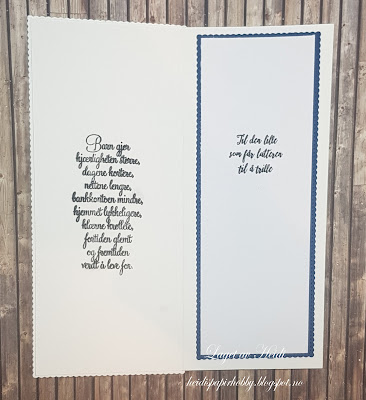 Barn gjør
kjærligheten større,
dagene kortere,
nettene lengre,
bankkontoen mindre,
hjemmet lykkeligere,
klærne krøllete,
fortiden glemt
og fremtiden
verdt å leve for.
Til den lille
som får latteren
til å trille
Laget av Heidi
heidispapirhobby.blogspot.no